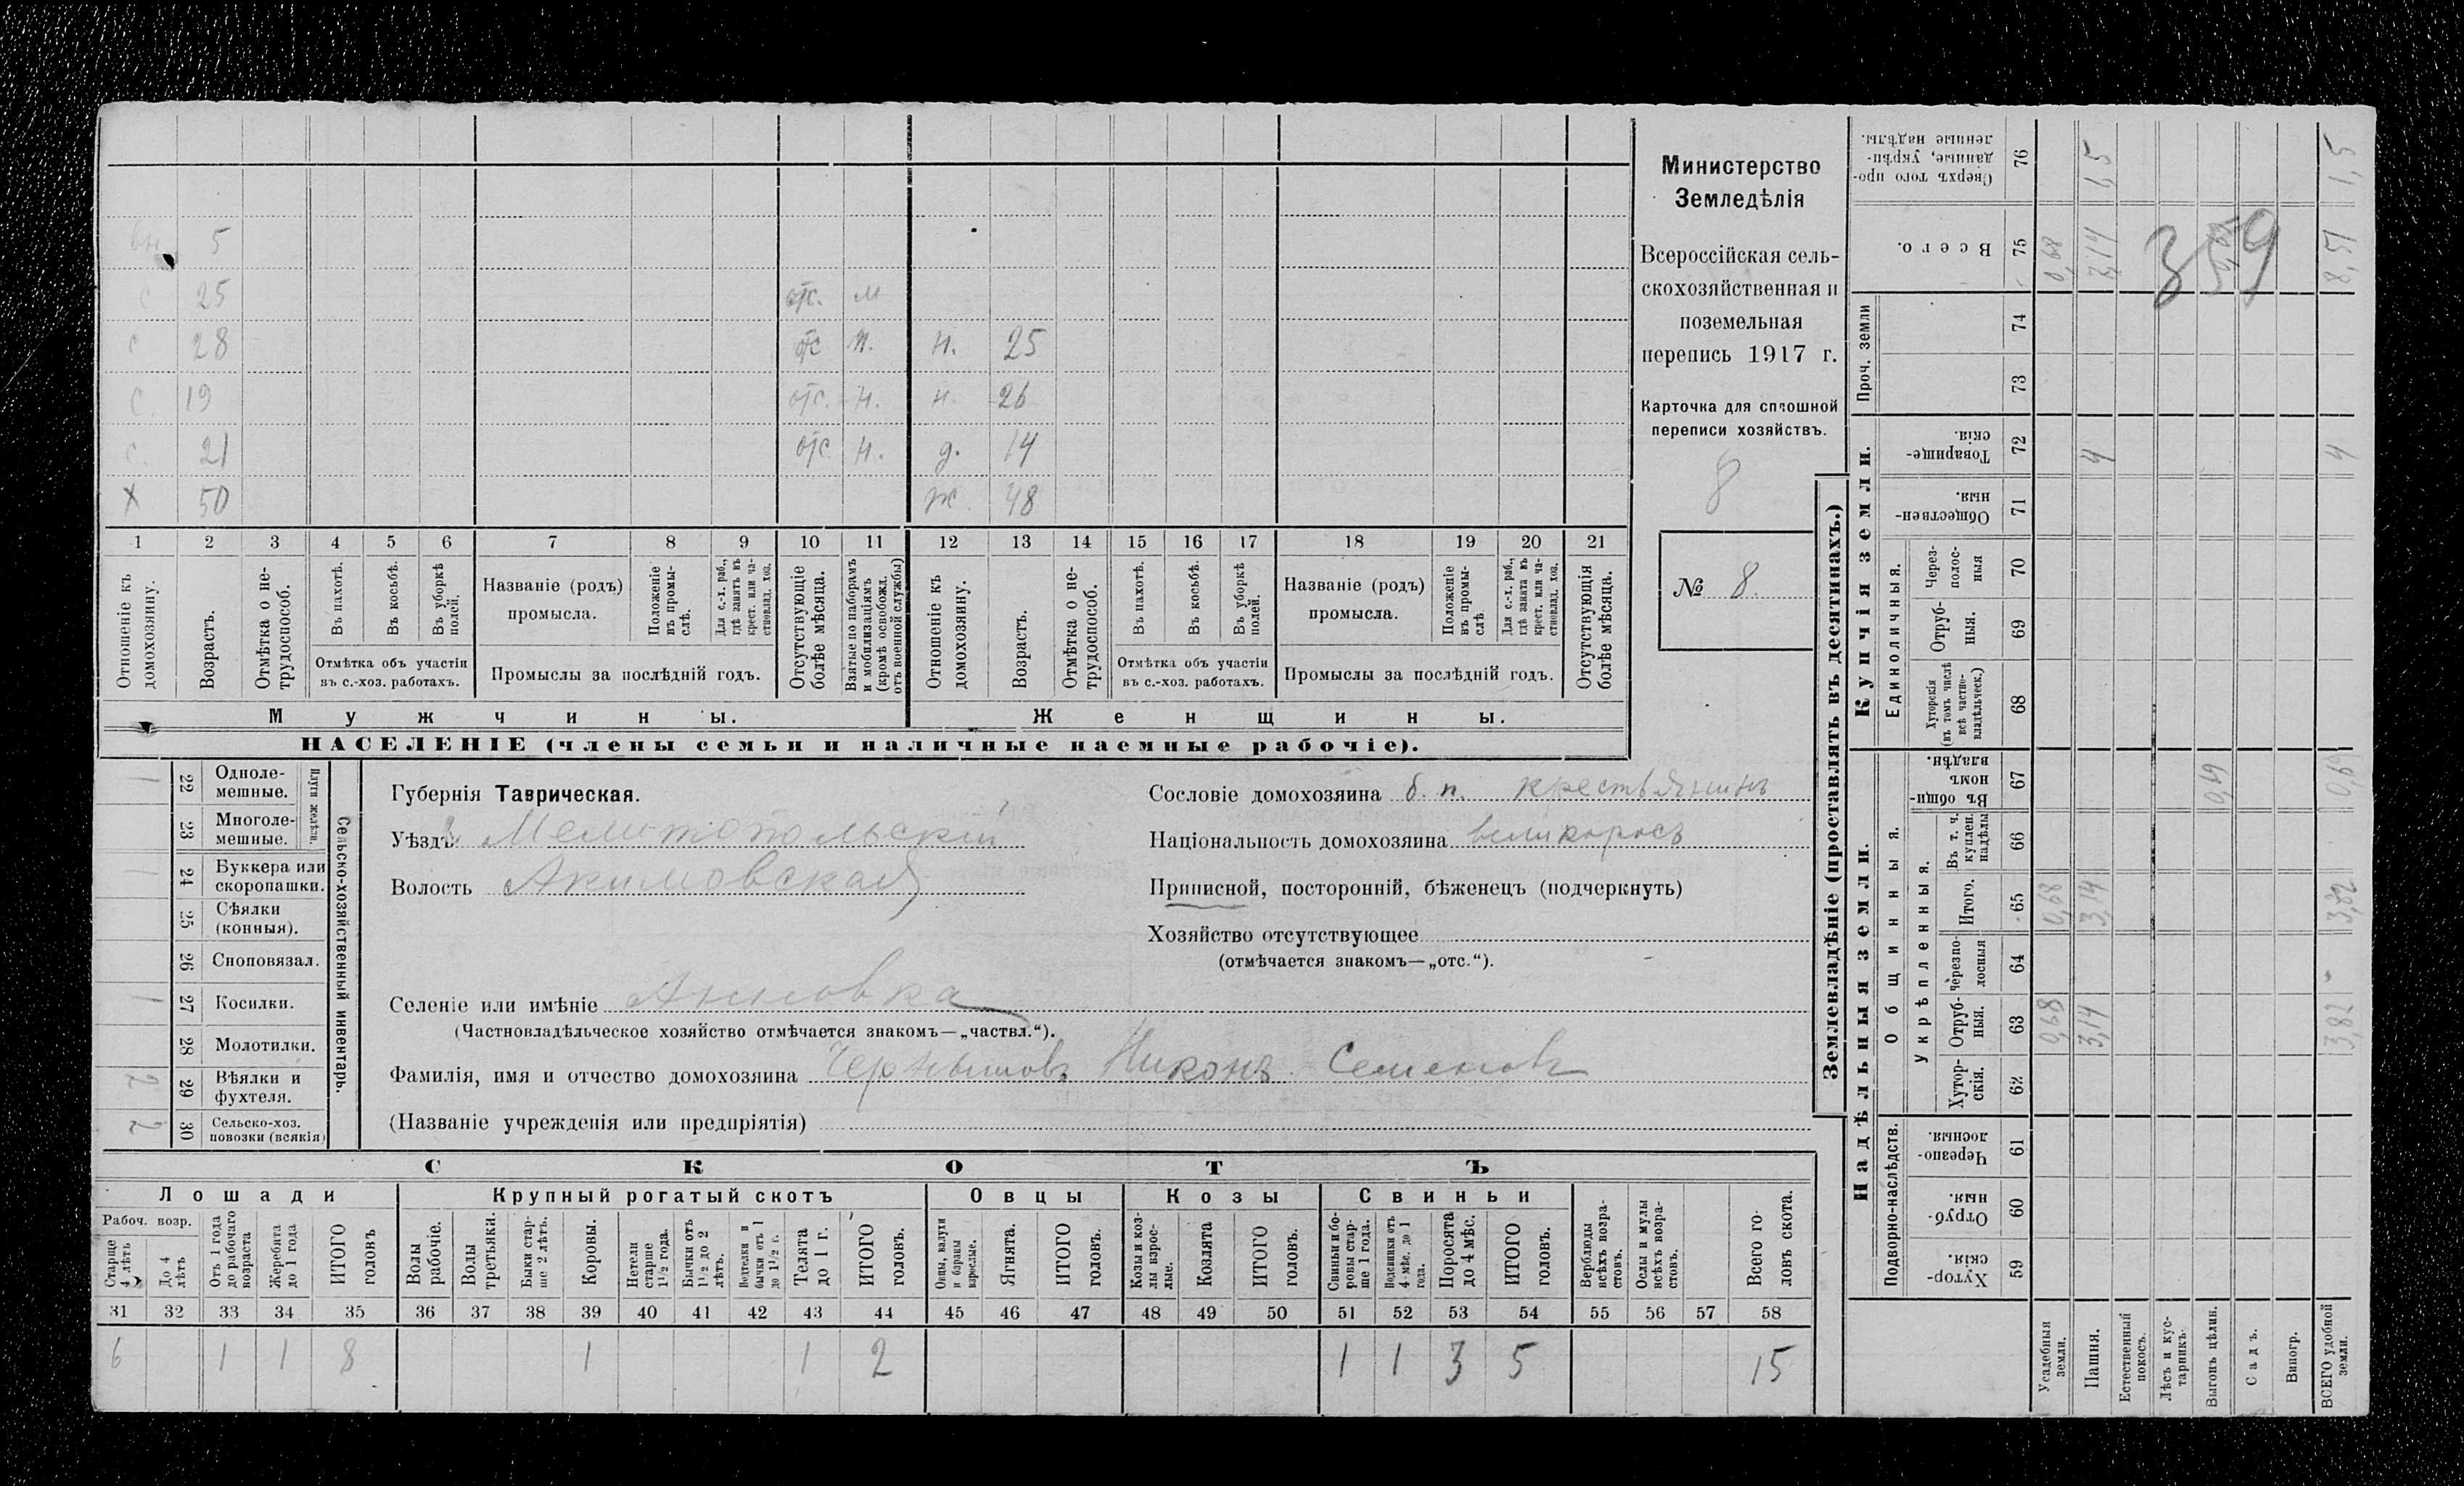 Министерство
Земледѣлія
Всероссійская сель-
скохозяйственная и
поземельная
перепись 1917 г.
Карточка для сплошной
переписи хозяйствъ.
8
№ 8.
5
с 25 отс. м
с 28 отс н. н. 25
с 19 отс. н. н. 26
с. 21 отс н. д. 14
х 50 ж. 48
1 2 3 4 5 6 7 8 9 10 11 12 13 14 15 16 17 18 19 20 21
Отношеніе къ домохозяину.
Возрастъ.
Отмѣтка о не-трудоспособ.
Въ пахотѣ.
Въ косьбѣ.
Въ уборкѣ полей.
Отмѣтка объ участіи
въ с.-хоз. работахъ.
Названіе (родъ)
промысла.
Положеніе въ промы-слѣ.
Для с.-х. раб., гдѣ занятъ въ крест. или ча-стновлад. хоз.
Промыслы за послѣдній годъ.
Отсутствующіе болѣе мѣсяца.
Взятые по наборамъ и мобилизаціямъ (кромѣ освобожд. отъ военной службы)
Отношеніе къ домохозяину.
Возрастъ.
Отмѣтка о не-трудоспособ.
Въ пахотѣ.
Въ косьбѣ.
Въ уборкѣ полей.
Отмѣтка объ участіи
въ с.-хоз. работахъ.
Названіе (родъ)
промысла.
Положеніе въ промы-слѣ.
Для с.-х. раб., гдѣ занята въ крест. или ча-стновлад. хоз.
Промыслы за послѣдній годъ.
Отсутствующія болѣе мѣсяца.
Мужчины. Женщины.
НАСЕЛЕНІЕ (члены семьи и наличные наемные рабочіе).
Сельско-хозяйственный инвентарь.
Плуги желѣзн.
1 22 Одноле-мешные.
23 Многоле-мешные.
1 24 Буккера или скоропашки.
25 Сѣялки (конныя).
26 Сноповязал.
1 27 Косилки.
28 Молотилки.
2 29 Вѣялки и фухтеля.
2 30 Сельско-хоз. повозки (всякія)
Губернія Таврическая.
Уѣздъ Мелитопольскій
Волость Акимовская
Селеніе или имѣніе Анновка
(Частновладѣльческое хозяйство отмѣчается знакомъ—„частвл.“).
Фамилія, имя и отчество домохозяина Чернышовъ Никонъ Семеновъ
(Названіе учрежденія или предпріятія)
Сословіе домохозяина б. п. крестьянинъ
Національность домохозяина великоросъ
Приписной, посторонній, бѣженецъ (подчеркнуть)
Хозяйство отсутствующее
(отмѣчается знакомъ—„отс.“).
СКОТЪ
Лошади Крупный рогатый скотъ Овцы Козы Свиньи
Рабоч. возр.
Старше 4 лѣтъ
До 4 лѣтъ
Отъ 1 года до рабочаго возраста
Жеребята до 1 года
ИТОГО головъ
Волы рабочіе.
Волы третьяки.
Быки стар-ше 2 лѣтъ.
Коровы.
Нетели старше 1½ года.
Бычки отъ 1½ до 2 лѣтъ.
Подтелки и бычки отъ 1 до 1½ г.
Телята до 1 г.
ИТОГО головъ.
Овцы, валухи и бараны взрослые.
Ягнята.
ИТОГО головъ.
Козы и коз-лы взрос-лые.
Козлята
ИТОГО головъ.
Свиньи и бо-ровы стар-ше 1 года.
Подсвинки отъ 4 мѣс. до 1 года.
Поросята до 4 мѣс.
ИТОГО головъ.
Верблюды всѣхъ возра-стовъ.
Ослы и мулы всѣхъ возра-стовъ.
Всего го-ловъ скота.
31 32 33 34 35 36 37 38 39 40 41 42 43 44 45 46 47 48 49 50 51 52 53 54 55 56 57 58
6 1 1 8 1 1 2 1 1 3 5 15
Землевладѣніе (проставлять въ десятинахъ.)
Купчія земли.
Надѣльныя земли.
Сверхъ того про-данные, укрѣп-ленные надѣлы. 76 1,5 1,5
Всего. 75 0,68 7,14 8,51
359
Проч. земли 74
73
Товарище-скія. 72 4 4
Обществен-ныя. 71
Единоличныя.
Через-полос-ныя 70
Отруб-ныя. 69
Хуторскія (въ томъ числѣ всѣ частно-владѣльческ.) 68
Общинныя.
Въ общи-номъ владѣн. 67 0,69 0,69
Укрѣпленныя.
Въ т. ч. куплен. надѣлы 66
Итого. 65 0,68 3,14 3,82
черезпо-лосныя 64
Отруб-ныя. 63 0,68 3,14 3,82
Хутор-скія. 62
Подворно-наслѣдств.
Черезпо-лосныя. 61
Отруб-ныя. 60
Хутор-скія. 59
Усадебныя земли.
Пашня.
Естественный покосъ.
Лѣсъ и кус-тарникъ.
Выгонъ цѣлин.
Садъ.
Виногр.
ВСЕГО удобной земли.